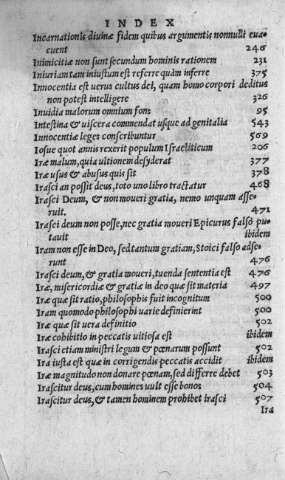 INDEX
Incarnationis diuinæ fidem quibus argumentis nonnulli eua⸗
cuent 246
Inimicitiæ non sunt secundum hominis rationem 231
Iniuriam tam iniustum est referre quàm inferre 375
Innocentia est uerus cultus dei, quam homo corpori deditus
non potest intelligere 326
Inuidia malorum omnium fons 95
Intestina & uiscera commendat usque ad genitalia 543
Innocentiæ leges conscribuntur 569
Iosue quot annis rexerit populum Israeliticum 206
Iræ malum, quia ultionem desyderat 377
Iræ usus & abusus quis sit 378
Irasci an possit deus, toto uno libro tractatur 468
Irasci Deum, & non moueri gratia, nemo unquam asse⸗
ruit. 471
Irasci deum non posse, nec gratia moueri Epicurus falsò pu
tauit ibidem
Iram non esse in Deo, sed tantum gratiam, Stoici falsò adse⸗
runt 476
Irasci deum, & gratia moueri, tuenda sententia est 476
Iræ, misericordiæ & gratiæ in deo quæ sit materia 497
Iræ quæ sit ratio, philosophis fuit incognitum 500
Iram quomodo philosophi uariè definierint 500
Iræ quæ sit uera definitio 502
Iræ cohibitio in peccatis uitiosa est ibidem
Irasci etiam ministri legum & pœnarum possunt 502
Ira iusta est quæ in corrigendis peccatis accidit ibidem
Iræ magnitudo non donare pœnam, sed differre debet 503
Irascitur deus, cum homines uult esse bonos 504
Irascitur deus, & tamen hominem prohibet irasci 507
Ira